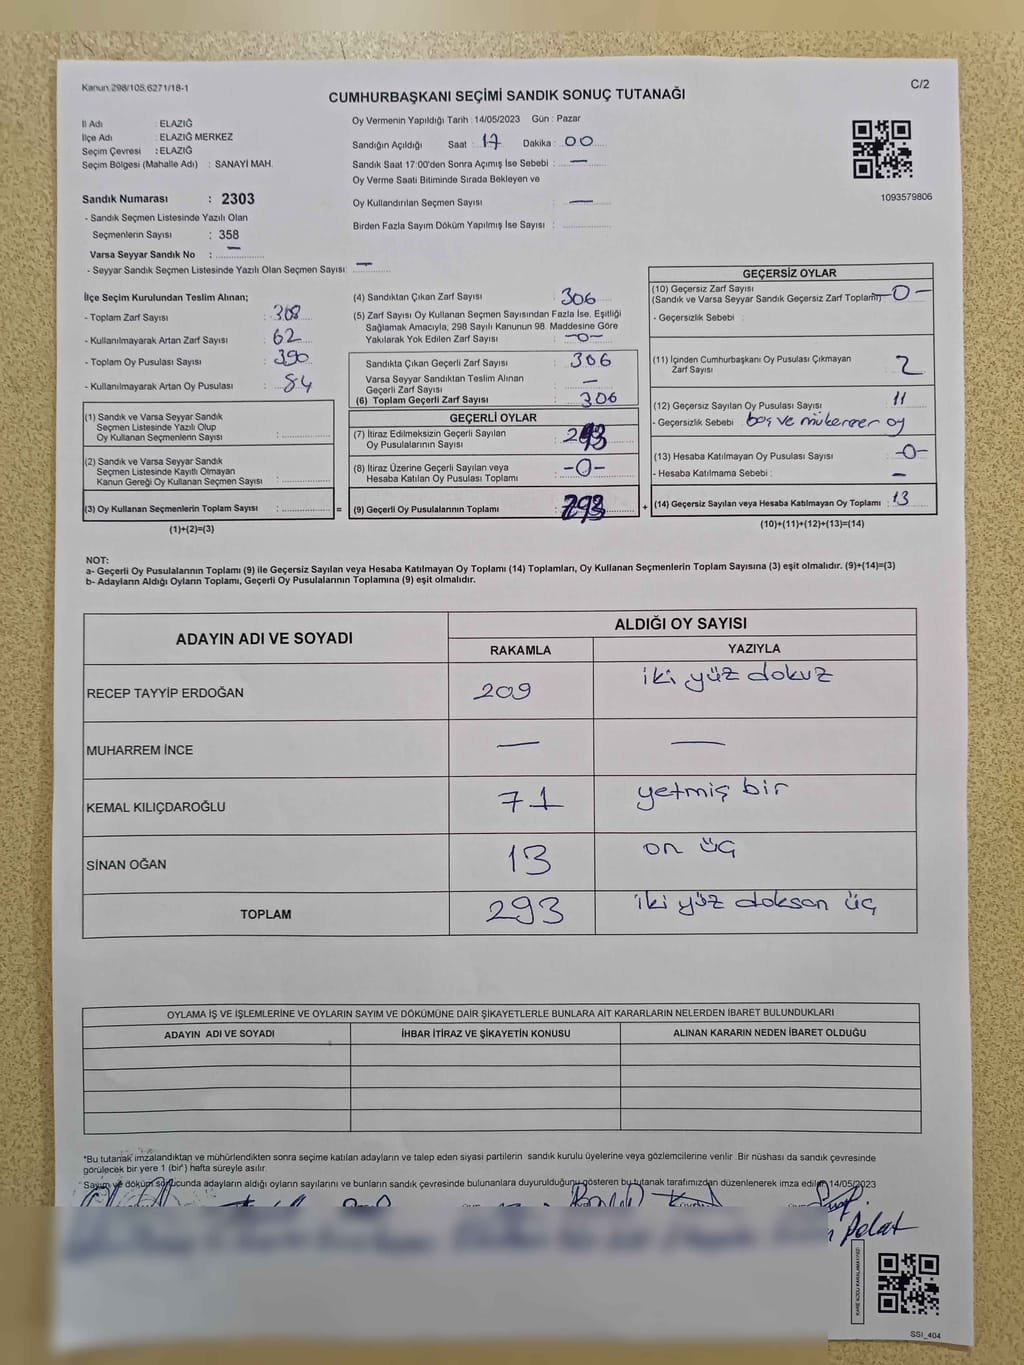 Kanun:298/105,6271/18-1
C/2
CUMHURBAŞKANI SEÇİMİ SANDIK SONUÇ TUTANAĞI
İl Adı : ELAZIĞ
İlçe Adı : ELAZIĞ MERKEZ
Seçim Çevresi : ELAZIĞ
Seçim Bölgesi (Mahalle Adı) : SANAYİ MAH.
Sandık Numarası : 2303
- Sandık Seçmen Listesinde Yazılı Olan
Seçmenlerin Sayısı : 358
Varsa Seyyar Sandık No : —
- Seyyar Sandık Seçmen Listesinde Yazılı Olan Seçmen Sayısı: —
Oy Vermenin Yapıldığı Tarih : 14/05/2023 Gün : Pazar
Sandığın Açıldığı Saat : 17 Dakika : 00
Sandık Saat 17:00'den Sonra Açımış İse Sebebi : —
Oy Verme Saati Bitiminde Sırada Bekleyen ve
Oy Kullandırılan Seçmen Sayısı : —
Birden Fazla Sayım Döküm Yapılmış İse Sayısı :
1093579806
İlçe Seçim Kurulundan Teslim Alınan;
- Toplam Zarf Sayısı : 368
- Kullanılmayarak Artan Zarf Sayısı : 62
- Toplam Oy Pusulası Sayısı : 390
- Kullanılmayarak Artan Oy Pusulası : 84
(1) Sandık ve Varsa Seyyar Sandık
Seçmen Listesinde Yazılı Olup
Oy Kullanan Seçmenlerin Sayısı :
(2) Sandık ve Varsa Seyyar Sandık
Seçmen Listesinde Kayıtlı Olmayan
Kanun Gereği Oy Kullanan Seçmen Sayısı :
(3) Oy Kullanan Seçmenlerin Toplam Sayısı : =
(1)+(2)=(3)
(4) Sandıktan Çıkan Zarf Sayısı : 306
(5) Zarf Sayısı Oy Kullanan Seçmen Sayısından Fazla İse, Eşitliği
Sağlamak Amacıyla, 298 Sayılı Kanunun 98. Maddesine Göre
Yakılarak Yok Edilen Zarf Sayısı : -0-
Sandıkta Çıkan Geçerli Zarf Sayısı : 306
Varsa Seyyar Sandıktan Teslim Alınan
Geçerli Zarf Sayısı : —
(6) Toplam Geçerli Zarf Sayısı : 306
GEÇERLİ OYLAR
(7) İtiraz Edilmeksizin Geçerli Sayılan
Oy Pusulalarının Sayısı : 293
(8) İtiraz Üzerine Geçerli Sayılan veya
Hesaba Katılan Oy Pusulası Toplamı : -0-
(9) Geçerli Oy Pusulalarının Toplamı : 293 +
GEÇERSİZ OYLAR
(10) Geçersiz Zarf Sayısı
(Sandık ve Varsa Seyyar Sandık Geçersiz Zarf Toplamı) -0-
- Geçersizlik Sebebi :
(11) İçinden Cumhurbaşkanı Oy Pusulası Çıkmayan
Zarf Sayısı : 2
(12) Geçersiz Sayılan Oy Pusulası Sayısı : 11
- Geçersizlik Sebebi : boş ve mükerrer oy
(13) Hesaba Katılmayan Oy Pusulası Sayısı : -0-
- Hesaba Katılmama Sebebi : —
(14) Geçersiz Sayılan veya Hesaba Katılmayan Oy Toplamı : 13
(10)+(11)+(12)+(13)=(14)
NOT:
a- Geçerli Oy Pusulalarının Toplamı (9) ile Geçersiz Sayılan veya Hesaba Katılmayan Oy Toplamı (14) Toplamları, Oy Kullanan Seçmenlerin Toplam Sayısına (3) eşit olmalıdır. (9)+(14)=(3)
b- Adayların Aldığı Oyların Toplamı, Geçerli Oy Pusulalarının Toplamına (9) eşit olmalıdır.
ADAYIN ADI VE SOYADI
ALDIĞI OY SAYISI
RAKAMLA YAZIYLA
RECEP TAYYİP ERDOĞAN 209 iki yüz dokuz
MUHARREM İNCE — —
KEMAL KILIÇDAROĞLU 71 yetmiş bir
SİNAN OĞAN 13 on üç
TOPLAM 293 iki yüz doksan üç
OYLAMA İŞ VE İŞLEMLERİNE VE OYLARIN SAYIM VE DÖKÜMÜNE DAİR ŞİKAYETLERLE BUNLARA AİT KARARLARIN NELERDEN İBARET BULUNDUKLARI
ADAYIN ADI VE SOYADI İHBAR İTİRAZ VE ŞİKAYETİN KONUSU ALINAN KARARIN NEDEN İBARET OLDUĞU
*Bu tutanak imzalandıktan ve mühürlendikten sonra seçime katılan adayların ve talep eden siyasi partilerin sandık kurulu üyelerine veya gözlemcilerine verilir. Bir nüshası da sandık çevresinde
görülecek bir yere 1 (bir) hafta süreyle asılır.
Sayım ve döküm sonucunda adayların aldığı oyların sayılarını ve bunların sandık çevresinde bulunanlara duyurulduğunu gösteren bu tutanak tarafımızdan düzenlenerek imza edildi 14/05/2023
Polat
KARE KODU KARALAMAYINIZ!
SSI_404